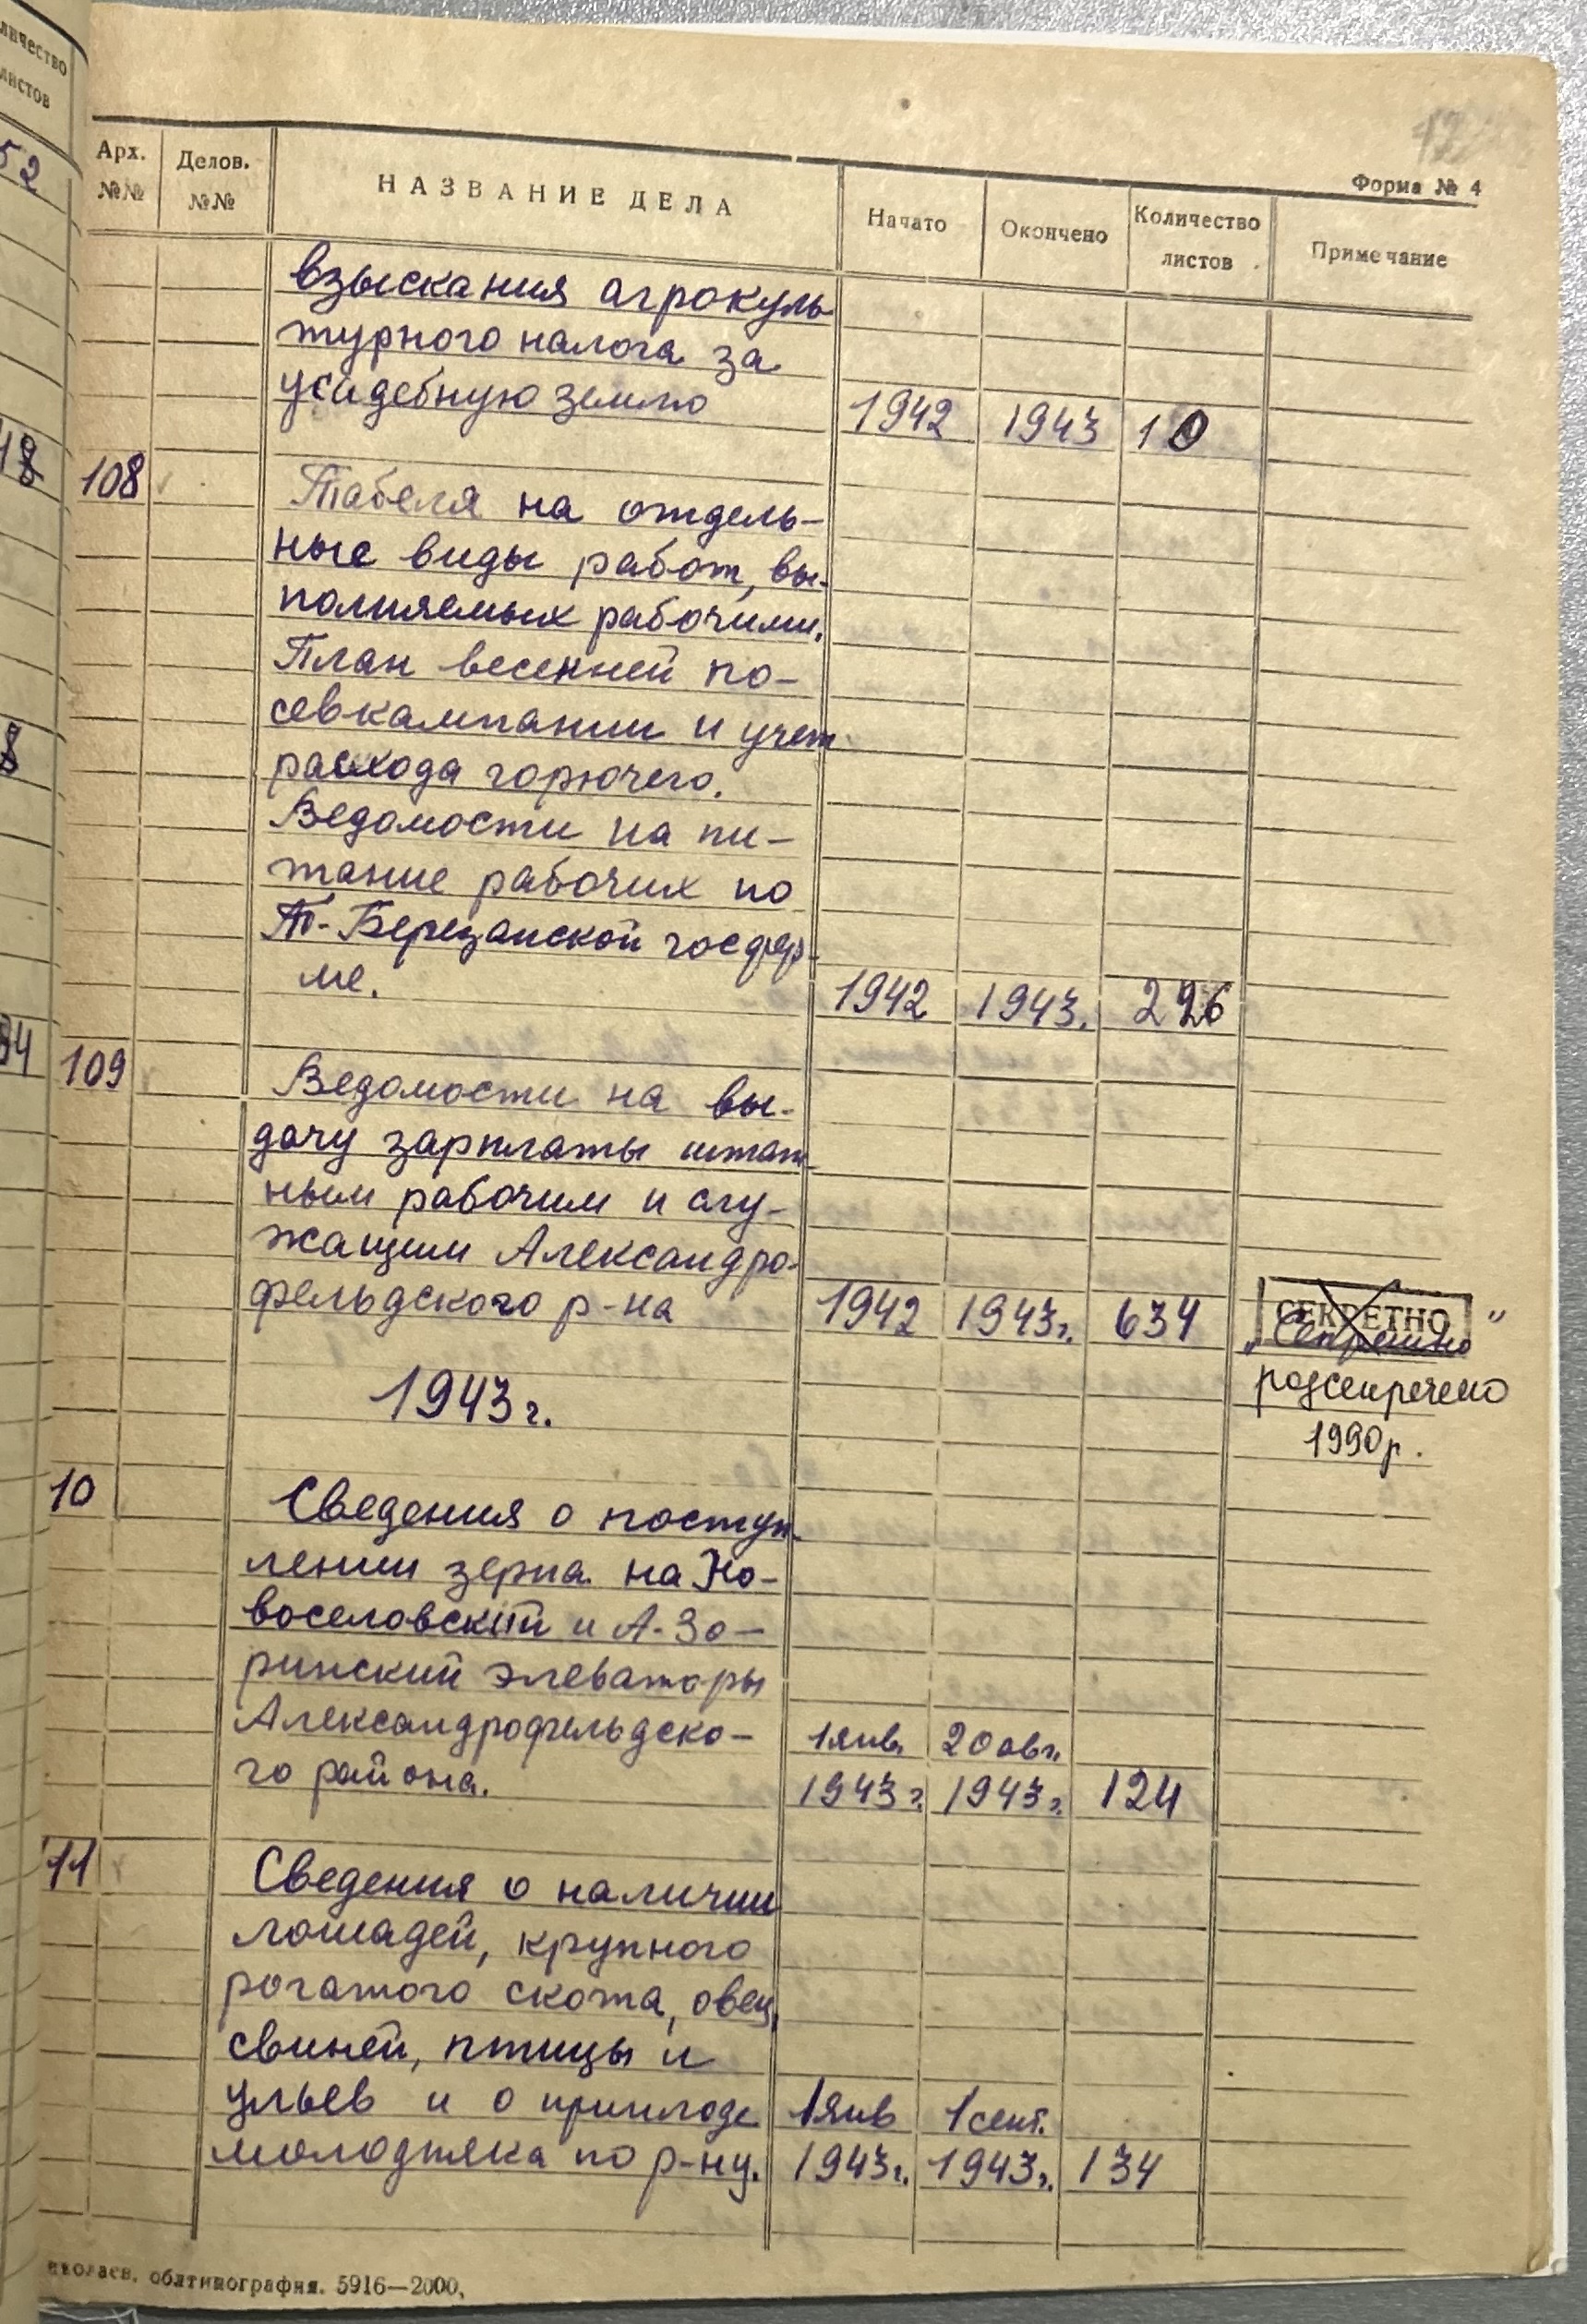 личество
листов
52
48
8
34
12
Форма № 4
Арх.
№№
Делов.
№№
НАЗВАНИЕ ДЕЛА
Начато
Окончено
Количество
листов
Примечание
взыскания агрокуль
турного налога за
усадебную землю 1942 1943 10
108 Табеля на отдель-
ные виды работ, вы-
полняемых рабочими.
План весенней по-
севкампании и учет
расхода горючего.
Ведомости на пи-
тание рабочих по
Т-Березанской госфер-
ме. 1942 1943. 226
109 Ведомости на вы-
дачу зарплаты штат-
ным рабочим и слу-
жащим Александро-
фельдского р-на 1942 1943г. 634
СЕКРЕТНО
„Секретно"
розсекречено
1990р.
1943г.
10 Сведения о поступ-
лении зерна на Но-
воселовский и А-Зо-
ринский элеваторы
Александрофельдско- 1янв. 20авг.
го района. 1943г. 1943г. 124
11 Сведения о наличии
лошадей, крупного
рогатого скота, овец,
свиней, птицы и
ульев и о приплоде 1янв 1сент.
молодняка по р-ну. 1943г. 1943г. 134
иколаев, облтипография. 5916—2000,